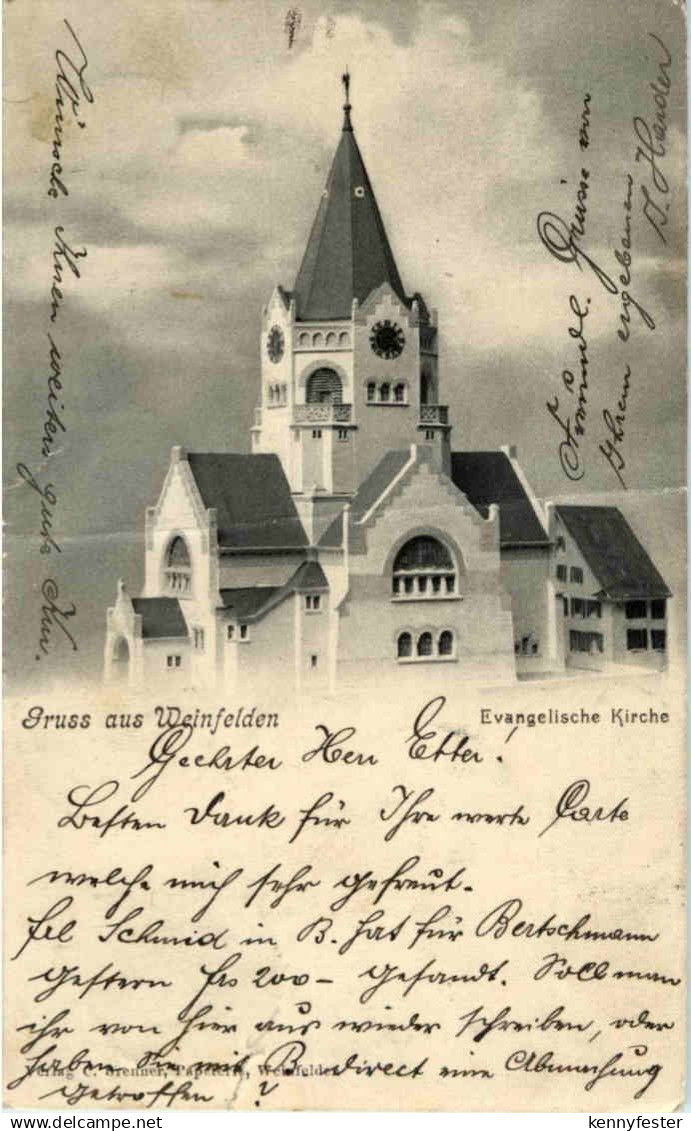 Gruss aus Weinfelden
Evangelische Kirche
Geehrter Herr Etter!
Besten Dank für Ihre werte Carte
welche mich sehr gefreut.
Frl Schmid in B. hat für Bertschmann
gestern frs 200 - gesandt. Soll man
ihr von hier aus wieder schreiben, oder
haben Sie mit B direct eine Abmachung
getroffen ?
Verlag C. Brenner, Papeterie, Weinfelden
Wünsche Ihnen weiters gute Kur.
Freundl. Grüsse von
Ihrem ergebenen
www.delcampe.net
kennyfester